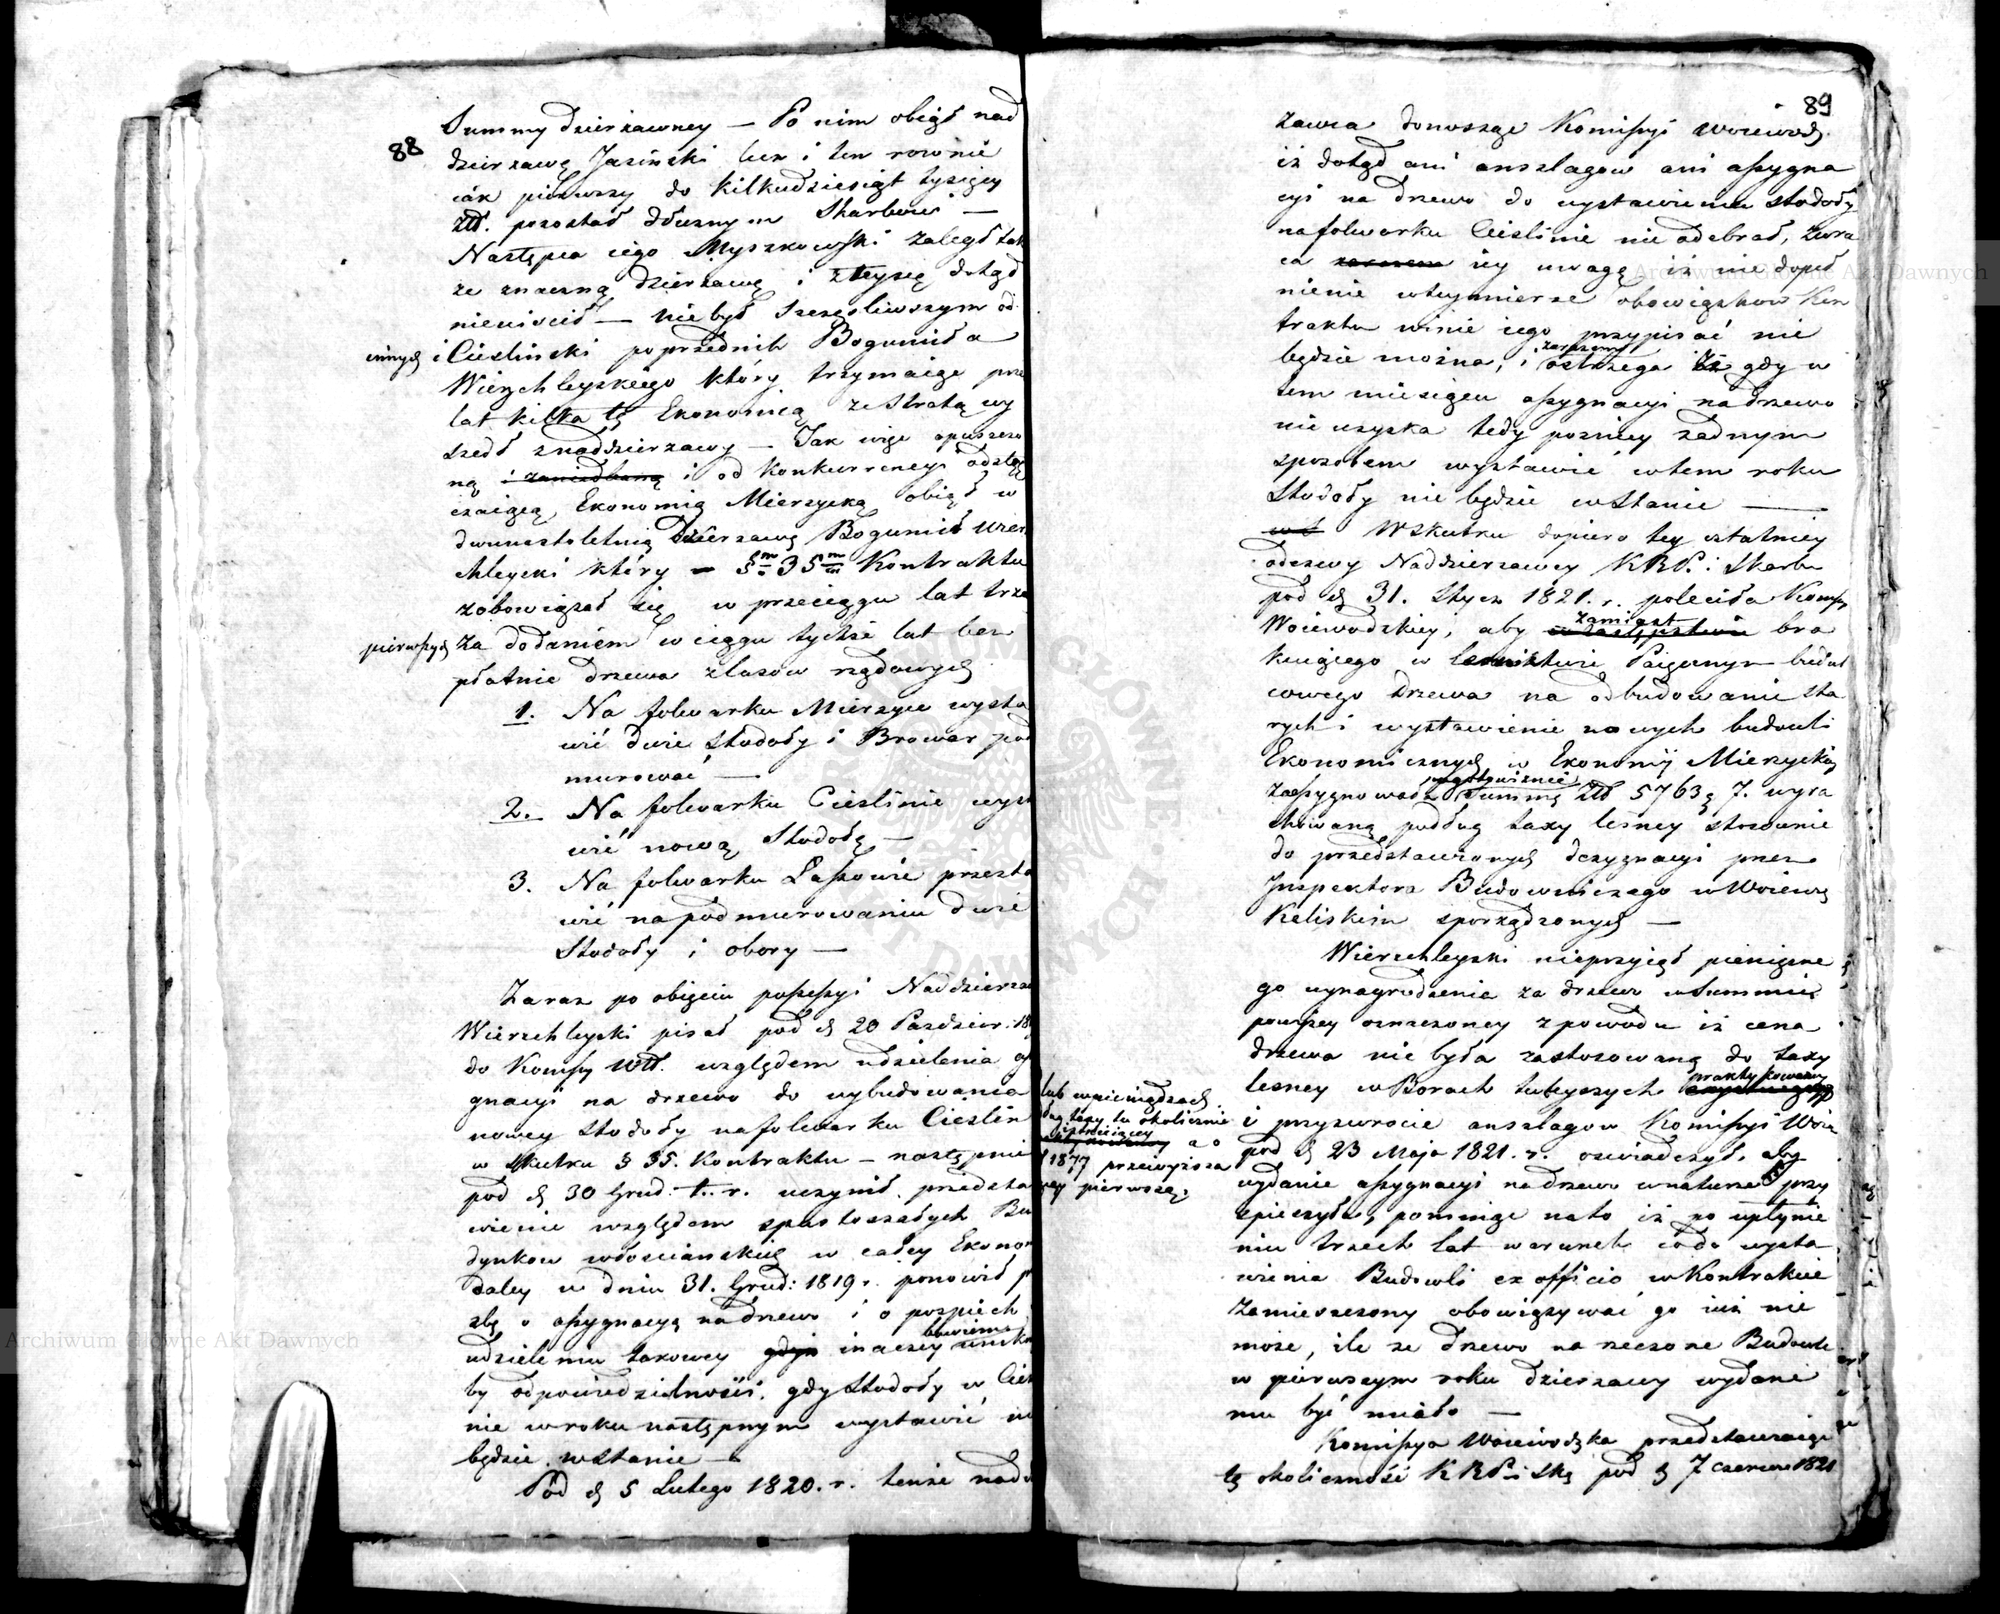 88
Summy dzierżawney — Po nim obiął nad
dzierżawę Jasiński lecz i ten rownie
iak pierwszy do kilkudziesiąt tysięcy
Złł. pozostał dłużnym Skarbowi —
Następca iego Myszkowski zaległ tak
że znaczną dzierżawę i z teyże dotąd
nieuiścił — nie był szczęśliwszym od
innych i Cieslinski poprzednik Bogumiła
Wierzchleyskiego który trzymaiąc prze
lat kilka tę Ekonomią ze stratą wy
szedł z naddzierżawy — Tak więc opuszczo
ną i zaniedbaną i od konkurrencyi odstę
czaiącą Ekonomią Mierzycką obiął w
dwunastoletnią dzierżawę Bogumił Wierz
chleyski który — 35 Kontraktu
zobowiązał się w przeciągu lat trze
pierwszych za dodaniem w ciągu tychże lat bez
płatnie drzewa z lasów rządowych
1. Na folwarku Mierzyce wysta
wić dwie stodoły i Browar pod
murować —
2. Na folwarku Cieslinie wyst
wić nową Stodołę —
3. Na folwarku Łaszowie przesta
wić na podmurowaniu dwie
Stodoły i obory —
Zaraz po obięciu possessyi Naddzierża
Wierzchleyski pisał pod d. 20 Pazdzier: 18
do Komissy Wdł. względem udzielenia as
gnacyi na drzewo do wybudowania
nowey stodoły na folwarku Cieslin
w skutku § 35. Kontraktu — następnie
pod d. 30 Grud: t. r. uczynił przedsta
wienie względem spustoszałych Bu
dynkow włosciańskich w całey Ekonom
daley w dniu 31. Grud: 1819 r. ponowił p
zbę o assygnacyą na drzewo i o pospiech
udzieleniu takowey gdyż inaczey bowiem unika
by odpowiedzialności, gdy stodoły w Cies
nie w roku następnym wystawić nie
będzie w stanie —
Pod d. 5 Lutego 1820. r. tenże nadd
89
zawca donosząc Komissyi Woiewodz.
iż dotąd ani anszlagow ani assygna
cyi na drzewo do wystawienia stodoły
na folwarku Cieslinie nie odebrał, zwra
ca zarazem iey uwagę iż nie dopeł
nienie w tey mierze obowiązkow Kon
traktu winie iego przypisać nie
będzie można, i zarazem ostrzega iż gdy w
tem miesiącu assygnacyi na drzewo
nie uzyska tedy pozniey żadnym
sposobem wystawić w tem roku
Stodoły nie będzie w stanie —
W skutku dopiero tey ostatniey
odezwy Naddzierżawcy K.R.P. i Skarbu
pod d. 31. Stycz 1821. r. poleciła Komissy
Woiewodzkiey, aby zamiast bra
kuiącego w Lesnictwie Paięcznym budul
cowego Drzewa na odbudowanie sta
rych i wystawienie nowych budowli
Ekonomicznych w Ekonomii Mierzyckiey
zaassygnowała w gotowiznie Summę Złł 5763 g. 7. wyra
chowaną podług taxy lesney stosownie
do przedstawionych dezygnacyi przez
Inspektora Budowniczego w Woiewó
Kaliskim sporządzonych —
Wierzchleyski nieprzyiął pienięzne
go wynagrodzenia za drzewo w Summie
powyżey oznaczoney z powodu iż cena
drzewa nie była zastosowaną do taxy
lesney w Borach tuteyszych praktykowaney
lub w pieniądzach
dług taxy tu okolicznie
istnieiącey
a o
f 1877 przewyższa
cey pierwszą,
i przy zwrocie anszlagow Komissyi Woie
pod d. 23 Maja 1821. r. oświadczył, aby
wydanie assygnacyi na drzewo w naturze przy
spieszyła, pomniąc na to iż po upłynie
niu trzech lat warunek co do wysta
wienia Budowli ex officio w Kontrakcie
zamieszczony obowiązywać go iuż nie
może, ile że drzewo na rzeczone Budowle
w pierwszym roku dzierżawy wydane
mu być miało —
Komissya Woiewodzka przedstawiaiąc
tę okoliczność K.R.P. i Sk. pod d. 7 czerwca 1821